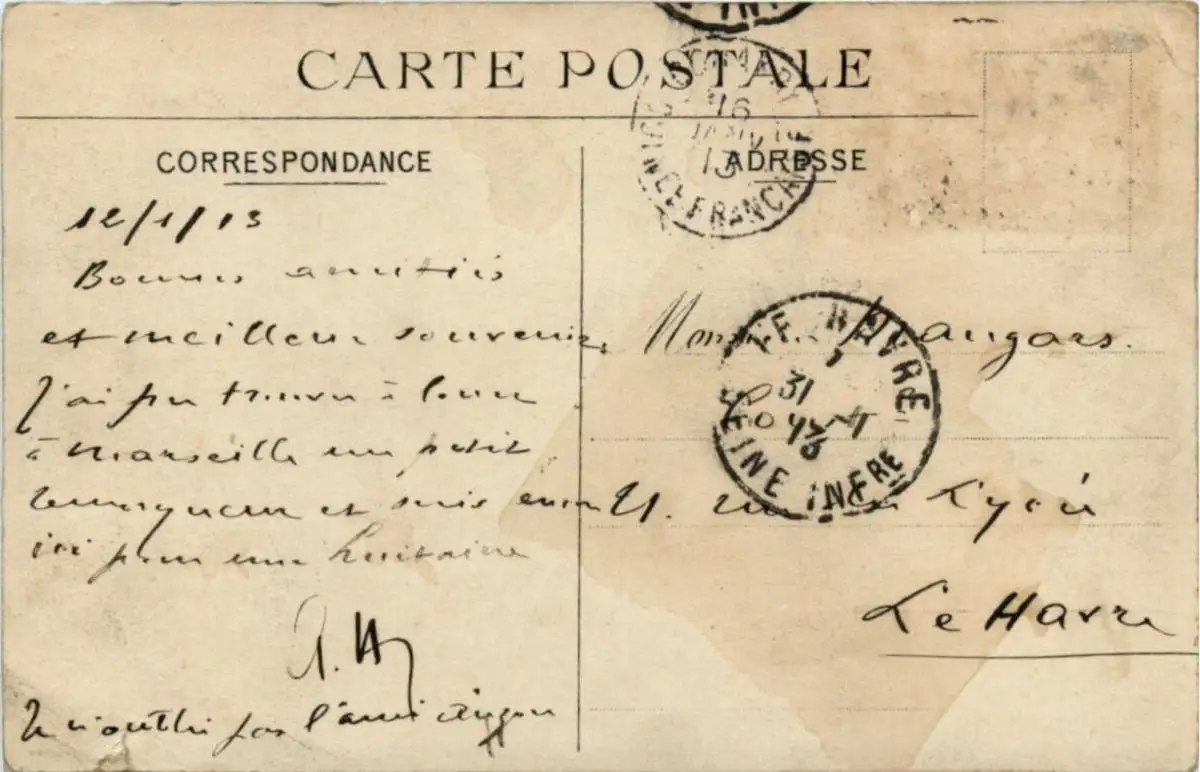 CARTE POSTALE
CORRESPONDANCE
ADRESSE
12/1/13
Bonnes amitiés
et meilleurs souvenirs
J'ai pu trouver à louer
à Marseille un petit
remorqueur et suis encore
ici pour une huitaine
Je n'oublie pas l'ami
16
JANV
13
FRANCAISE
LE HAVRE
31
SEINE INFRE
Monsieur Langars.
21. rue du Lycée
Le Havre